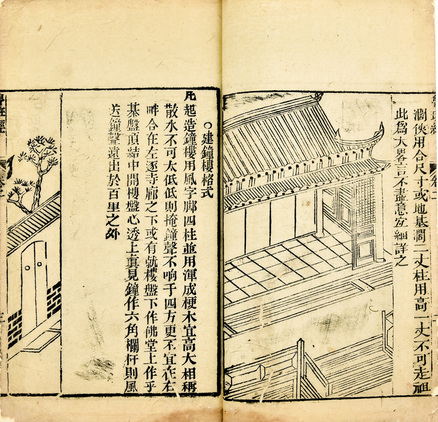 濶狹用合尺寸或地基濶二丈柱用高一丈不可走祖
此為大畧言不盡意宜細詳之
○建鐘樓格式
凡起造鐘樓用風字脚四柱並用渾成梗木宜高大相稱
散水不可太低低則掩鐘聲不响于四方更不宜在右
畔合在左逐寺廊之下或有就樓盤下作佛堂上作平
基盤頂結中開樓盤心透上直見鐘作六角欄杆則風
送鐘聲遠出於百里之外